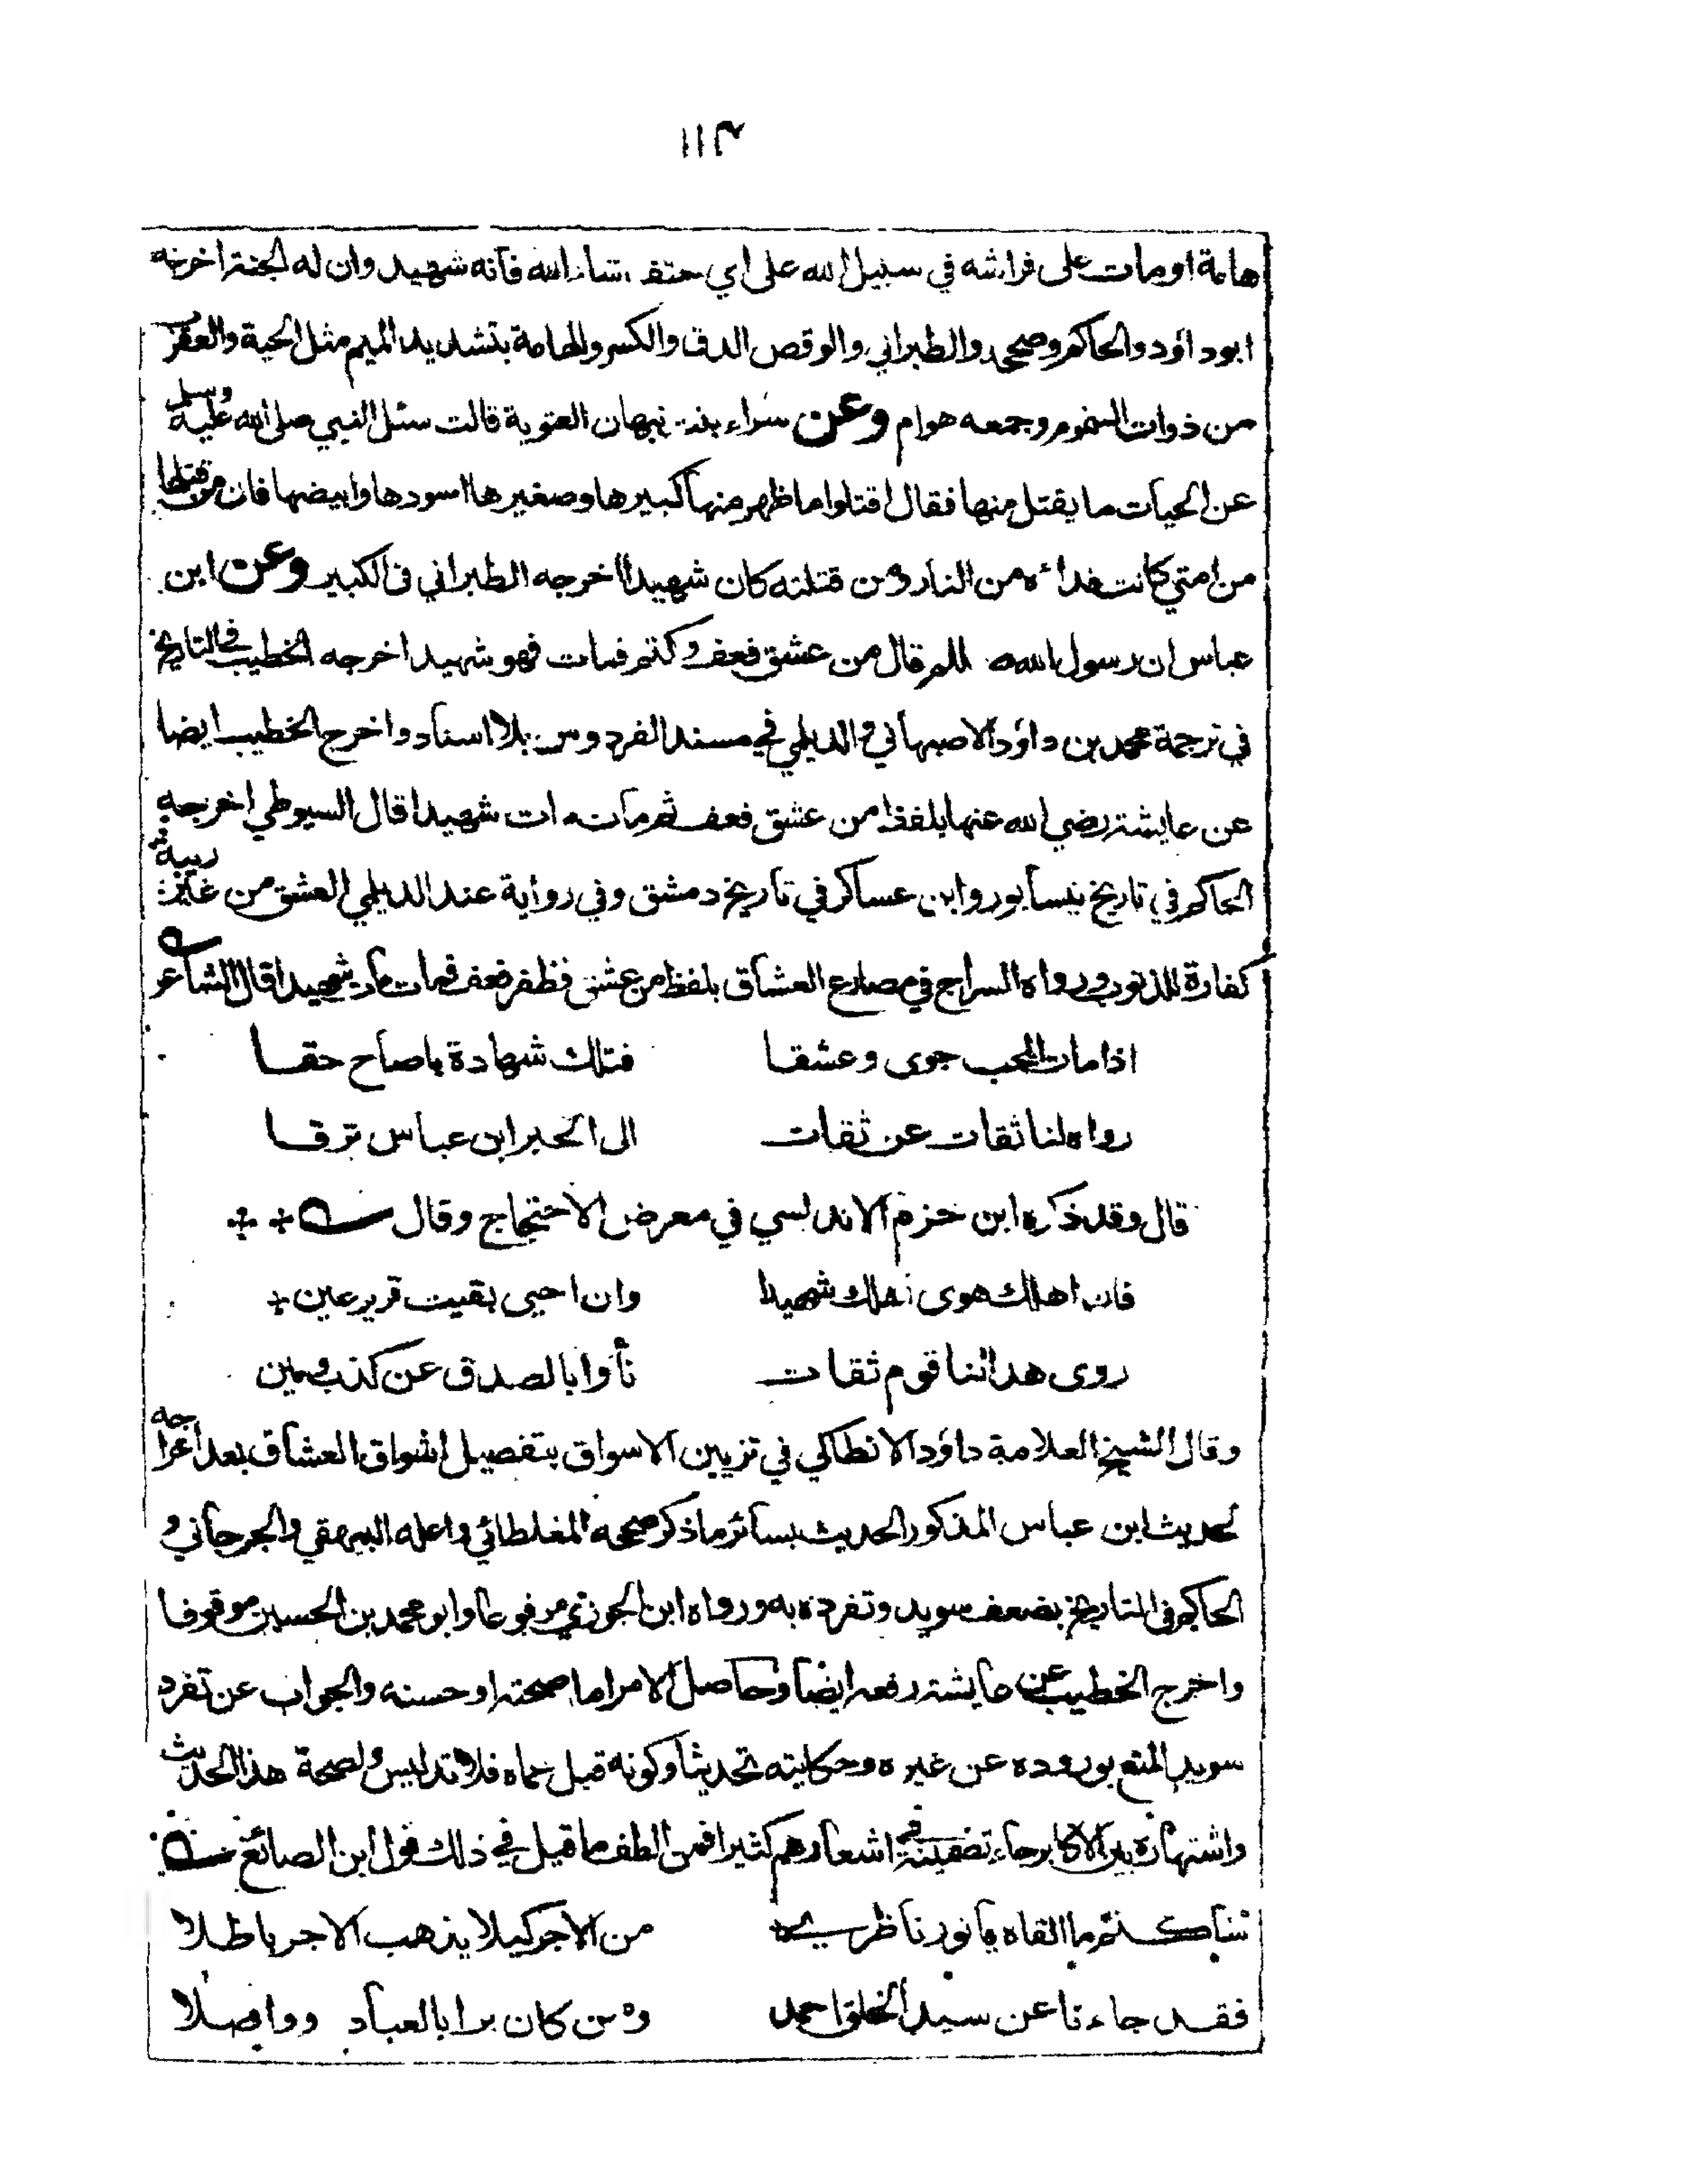 ١١٣
هامة اومات على فراشه في سبيل الله على اي حتف شاء الله فانه شهيد وان له الجنة اخرجه
ابوداؤد والحاكم وصححه والطبراني والوقص الدق والكسر والهامة بتشديد الميم مثل الحية والعقرب
من ذوات السموم وجمعه هوام وعن سراء بنت نبهان الغنوية قالت سئل النبي صلى الله عليه وسلم
عن الحيات ما يقتل منها فقال اقتلوا ما ظهر منها كبيرها وصغيرها اسودها وابيضها فان من قتلها
من امتي كانت فداءه من النار ومن قتلته كان شهيدا اخرجه الطبراني في الكبير وعن ابن
عباس ان رسول الله صللم قال من عشق فعف وكتم فمات فهو شهيد اخرجه الخطيب في التاريخ
في ترجمة محمد بن داؤد الاصبهاني والديلمي في مسند الفردوس بلا اسناد واخرج الخطيب ايضا
عن عايشة رضي الله عنها بلفظ من عشق فعف ثم مات مات شهيدا قال السيوطي اخرجه
الحاكم في تاريخ نيسابور وابن عساكر في تاريخ دمشق وفي رواية عند الديلمي العشق من غير ريبة
كفارة للذنوب ورواه السراج في مصارع العشاق بلفظ من عشق فظفر فعف فمات مات شهيدا قال الشاعر
اذا مات المحب جوى وعشقا فتلك شهادة ياصاح حقا
رواه لنا ثقات عن ثقات الى الحبر ابن عباس ترقا
قال وقد ذكره ابن حزم الاندلسي في معرض الاحتجاج وقال
فان اهلك هوى اهلك شهيدا وان احيى بقيت قرير عين
روى هذا لنا قوم ثقات نأوا بالصدق عن كذب ومين
وقال الشيخ العلامة داؤد الانطاكي في تزيين الاسواق بتفصيل اشواق العشاق بعد اخراجه
لحديث ابن عباس المذكور الحديث بسائر ما ذكر صححه المغلطائي واعله البيهقي والجرجاني و
الحاكم في التاريخ بضعف سويد وتفرده به ورواه ابن الجوزي مرفوعا وابو محمد بن الحسين موقوفا
واخرج الخطيب عن عايشة رفعه ايضا وحاصل الامر اما صحته او حسنه والجواب عن تفرد
سويد المنع بوروده عن غيره وحكايته تحديثا وكونه قبل عماه فلا تدليس ولصحة هذا الحديث
واشتهاره بين الاكابر جاء تضمينه في اشعارهم كثيرا فمن الطف ما قيل في ذلك قول ابن الصائغ
ساكتم ما القاه يا نور ناظري من الاجر كيلا يذهب الاجر باطلا
فقد جاءنا عن سيد الخلق احمد ومن كان برا بالعباد وواصلا